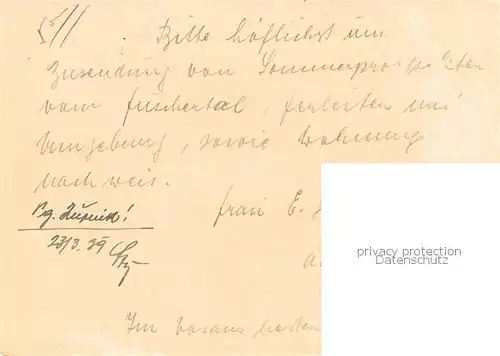 Bitte höflichst um
Zusendung von Sommerprospekten
vom Fuschertal, Ferleiten und
Umgebung, sowie Wohnung
nachweis.
Frau E.
23/3. 39
Im voraus besten
privacy protection
Datenschutz